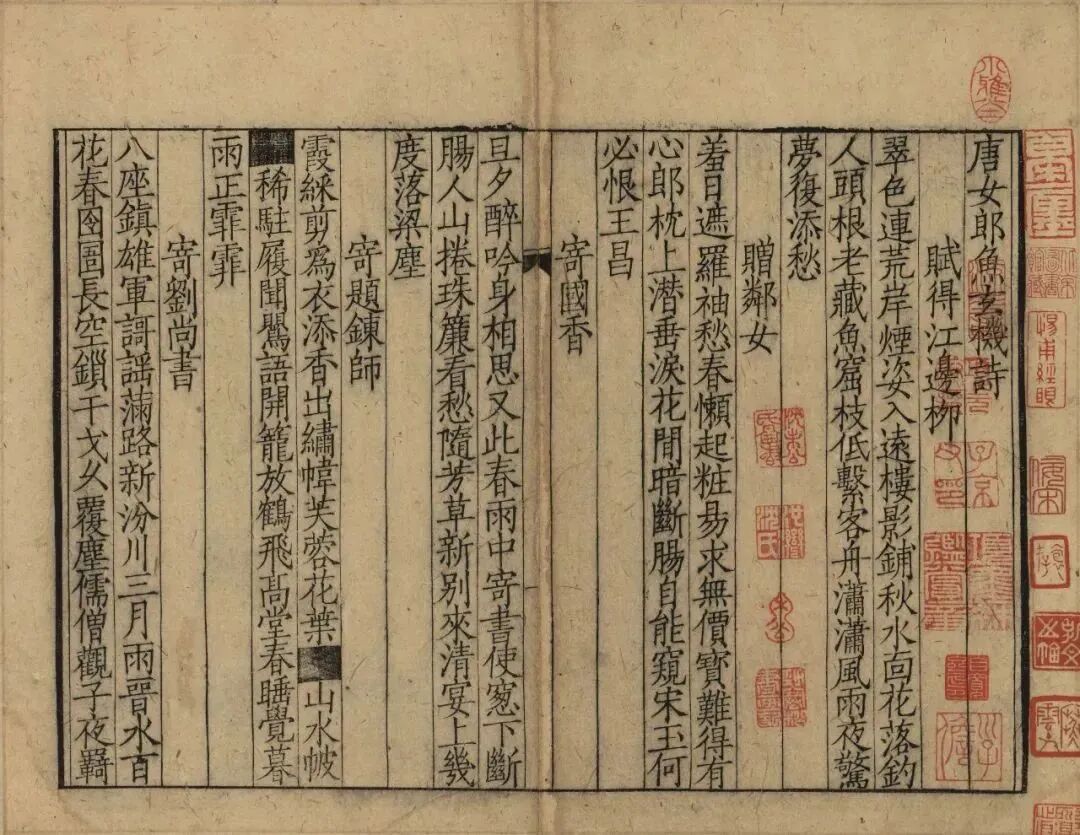 唐女郎魚玄機詩
賦得江邊栁
翠色連荒岸煙姿入遠樓影鋪秋水面花落釣
人頭根老藏魚窟枝低繫客舟瀟瀟風雨夜驚
夢復添愁
贈鄰女
羞日遮羅袖愁春懶起粧易求無價寶難得有
心郎枕上潛垂淚花間暗斷腸自能窺宋玉何
必恨王昌
寄國香
旦夕醉吟身相思又此春雨中寄書使窻下斷
腸人山捲珠簾看愁隨芳草新別來清宴上幾
度落梁塵
寄題鍊師
霞綵剪爲衣添香出繡幃芙蓉花葉山水帔
稀駐履聞鸎語開籠放鶴飛高堂春睡覺暮
雨正霏霏
寄劉尚書
八座鎮雄軍謌謡滿路新汾川三月雨晉水百
花春囹圄長空鎖干戈久覆塵儒僧觀子夜羇
楊甫經眼
子京